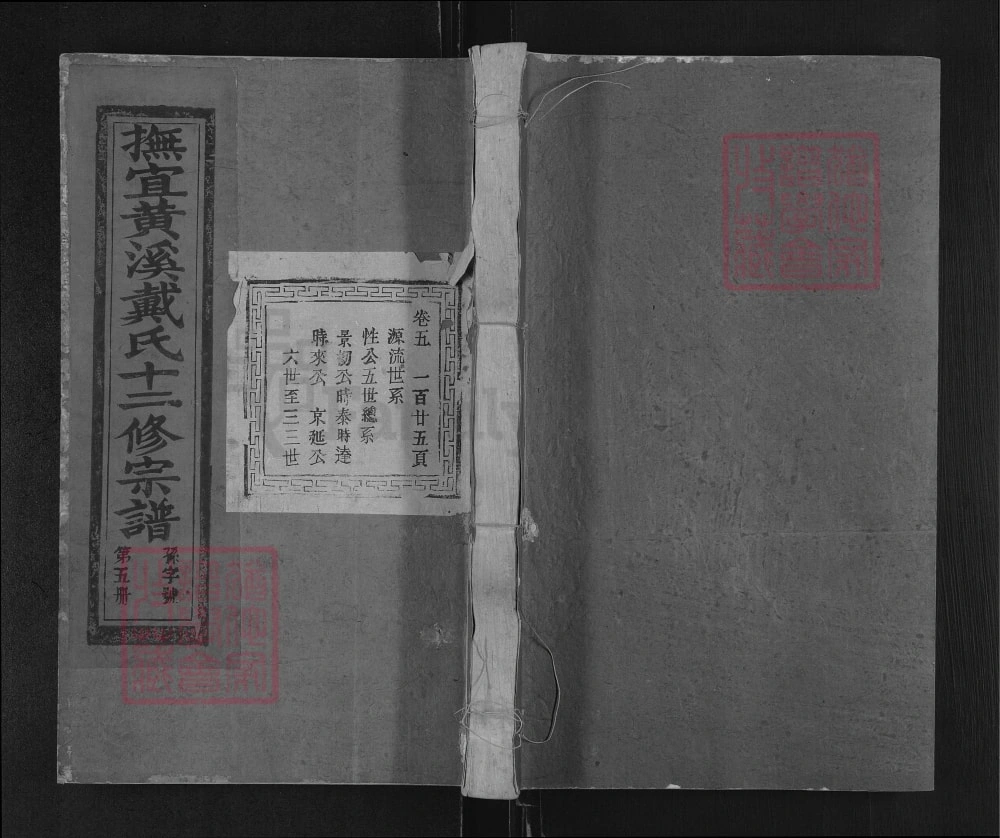 撫宜黄溪戴氏十二修宗譜
孫字號
第五册
卷五 一百廿五頁
源流世系
性公五世總系
景初公時泰時達
時來公 京延公
六世至三三世